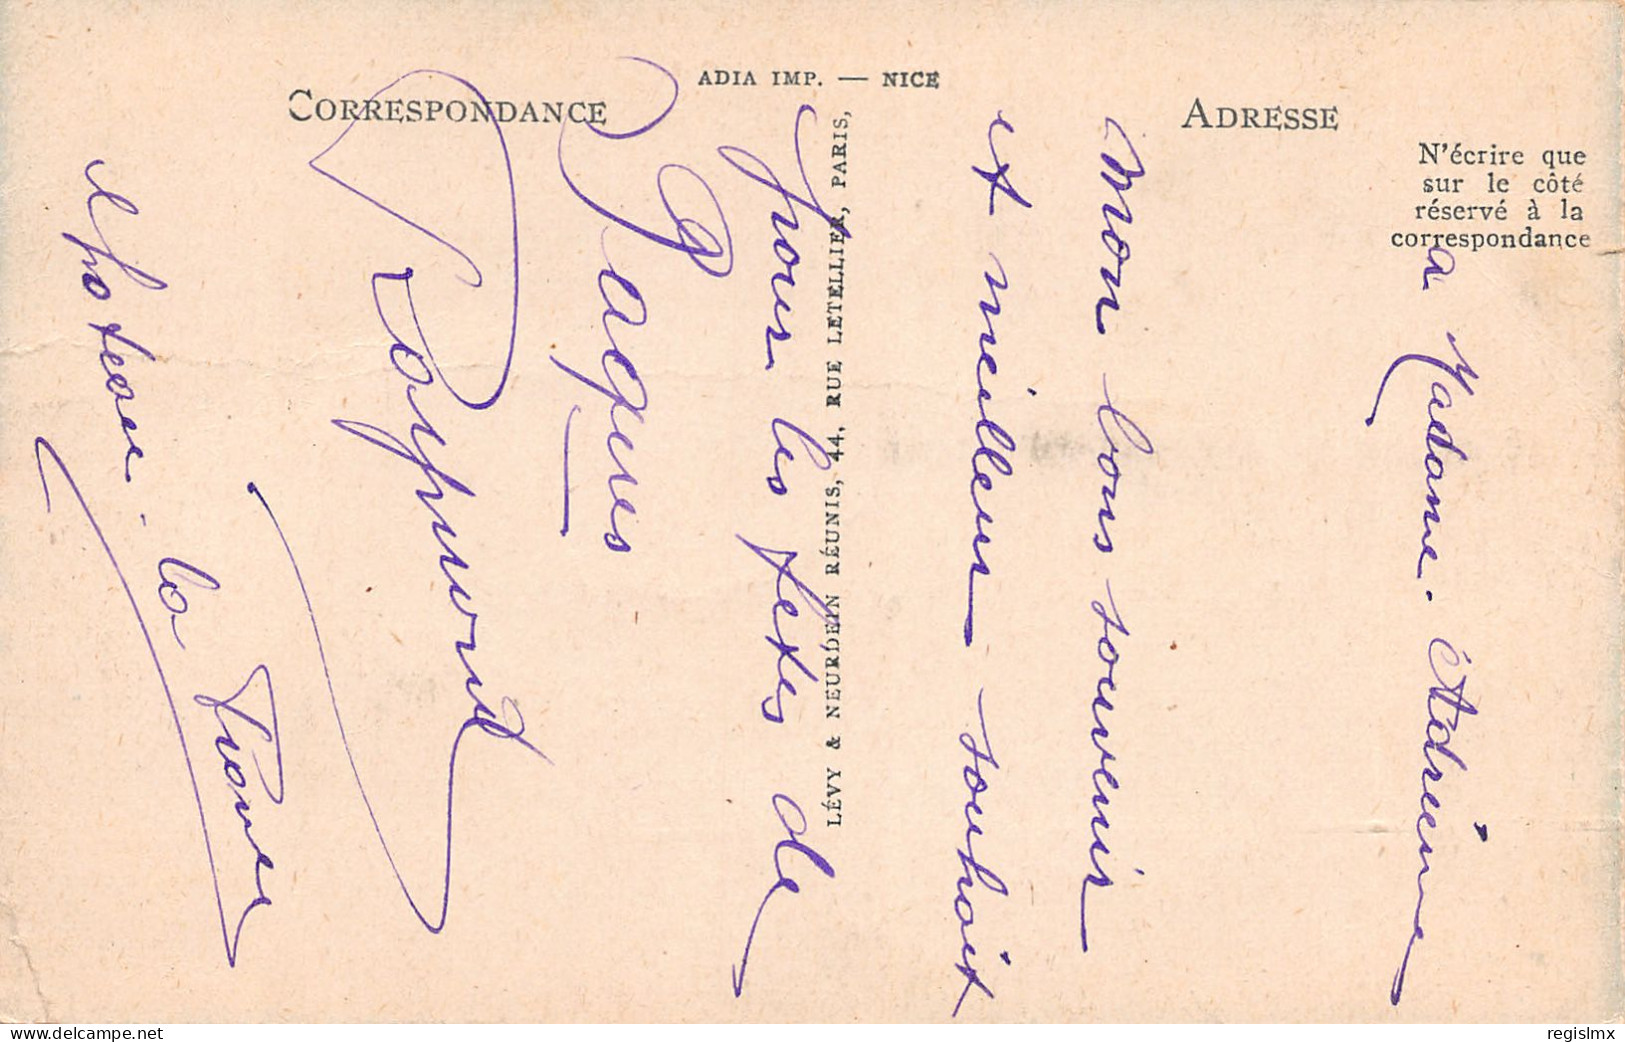 ADIA IMP. — NICE
CORRESPONDANCE
ADRESSE
N'écrire que
sur le côté
réservé à la
correspondance
LÉVY & NEURDEIN RÉUNIS, 44, RUE LETELLIER, PARIS,
a Madame. Adrienne
Mon bons souvenir
et meilleur souhait
pour les fetes de
Paques
chateau. la
www.delcampe.net
regislmx